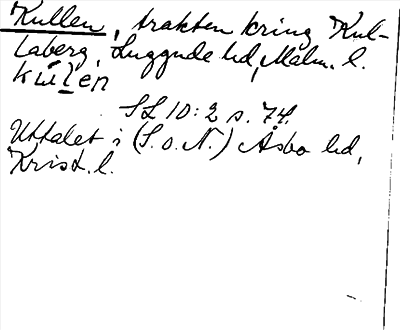 Kullen, trakten kring Kul-
laberg, Luggude hd, Malm. l.
kúlen
SL 10:2 s. 74.
Uttalet i (S. o. N.) Åsbo hd,
Krist. l.